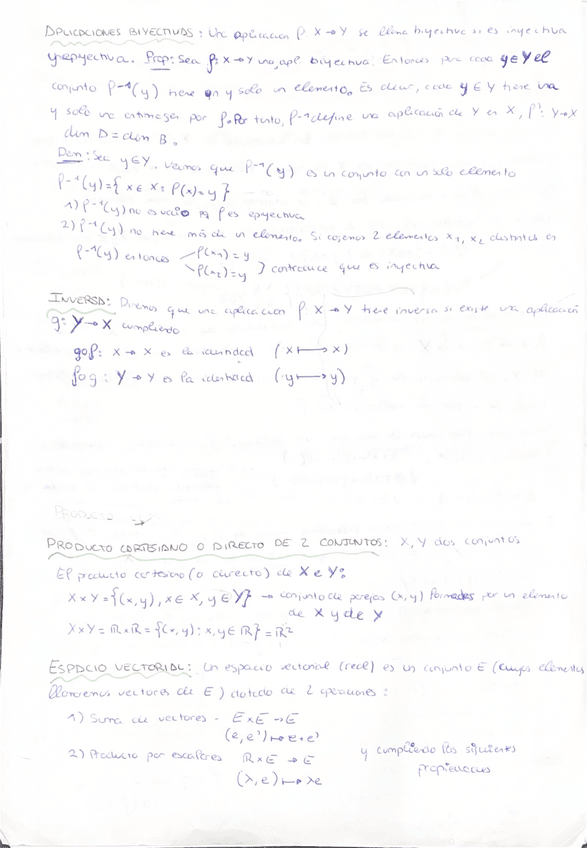 APLICACIONES BIYECTIVAS: Una aplicacion f X→Y se llama biyectiva si es inyectiva
y epiyectiva. Prop: Sea f: X→Y una apl biyectiva. Entonces para cada y∈Y el
conjunto f⁻¹(y) tiene un y solo un elemento. Es decir, cada y∈Y tiene una
y solo una antimagen por f. Por tanto, f⁻¹ define una aplicación de Y en X, f⁻¹: Y→X
dim D = dim B.
Dem: Sea y∈Y. Veamos que f⁻¹(y) es un conjunto con un solo elemento
f⁻¹(y)={x∈X: f(x)=y}
1) f⁻¹(y) no es vacio pq f es epiyectiva
2) f⁻¹(y) no tiene más de un elemento. Si cojemos 2 elementos x₁, x₂ distintos en
f⁻¹(y) entonces f(x₁)=y
f(x₂)=y } contradice que es inyectiva
INVERSA: Diremos que una aplicacion f X→Y tiene inversa si existe una aplicación
g: Y→X cumpliendo
gof: X→X es la identidad (x⟼x)
fog: Y→Y es la identidad (y⟼y)
PRODUCTO →
PRODUCTO CARTESIANO O DIRECTO DE 2 CONJUNTOS: X, Y dos conjuntos
El producto cartesiano (o directo) de X e Y:
X×Y={(x,y), x∈X, y∈Y} → conjunto de parejas (x,y) formadas por un elemento
de X y de Y
X×Y=ℝ×ℝ={(x,y): x,y∈ℝ}=ℝ²
ESPACIO VECTORIAL: Un espacio vectorial (real) es un conjunto E (cuyos elementos
llamaremos vectores de E) dotado de 2 operaciones:
1) Suma de vectores - E×E→E
(e,e')↦e+e'
2) Producto por escalares ℝ×E→E y cumpliendo las siguientes
(λ,e)⟼λe propiedades